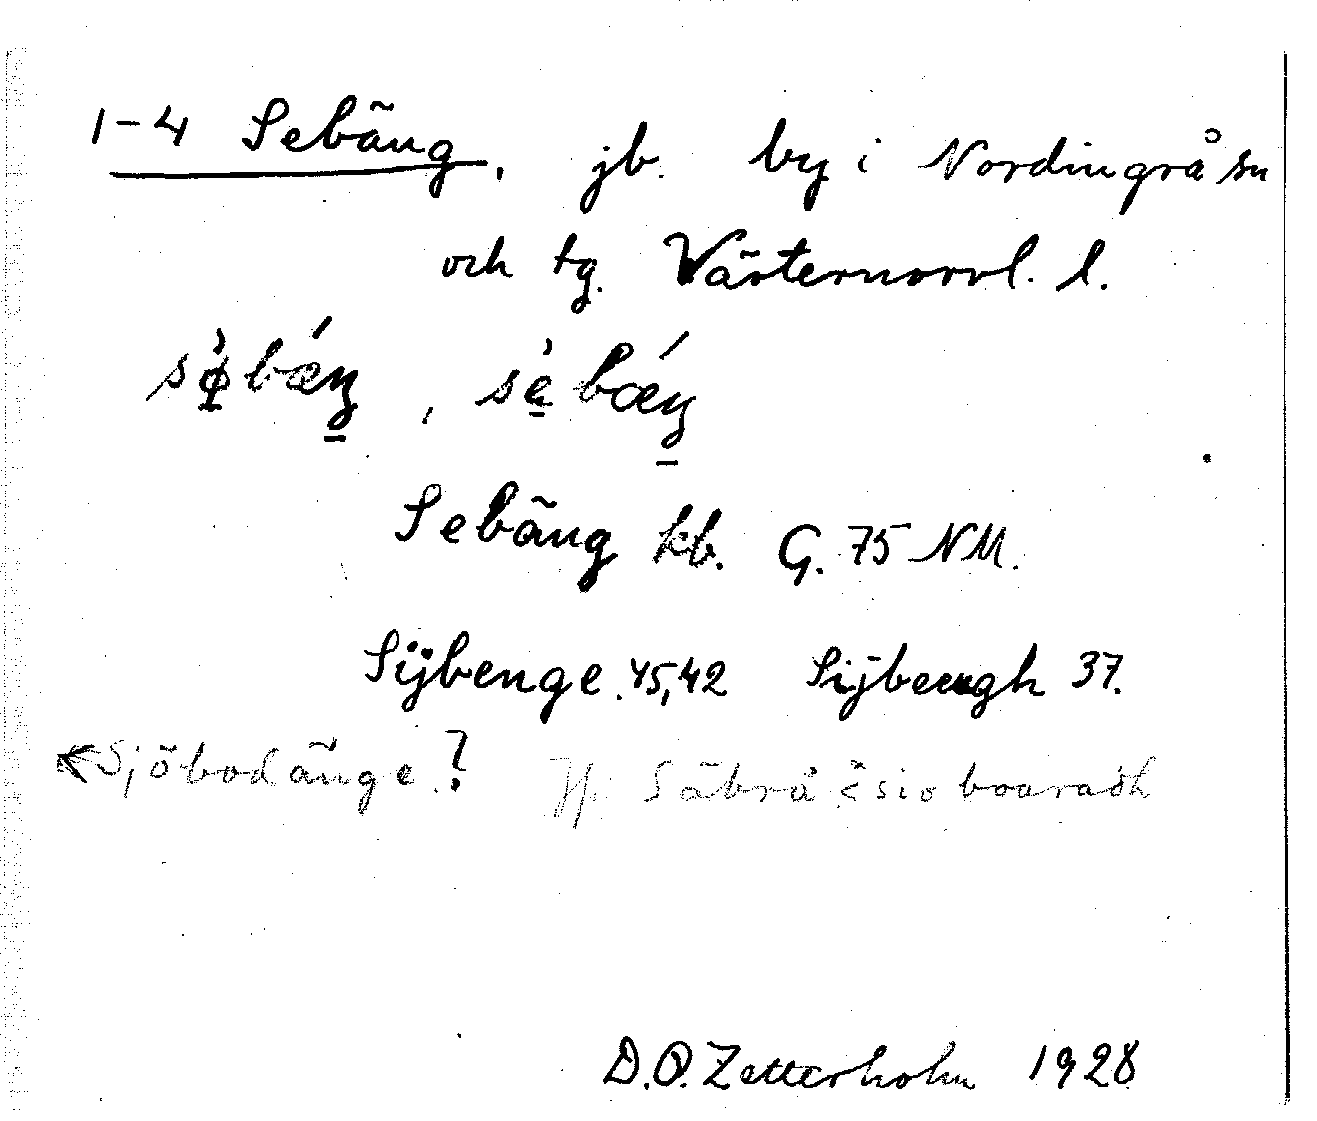 1-4 Sebäng, jb. by i Nordingrå sn
och tg. Västernorrl. l.
sø̀bǽŋ, sèbǽŋ
Sebäng kb. G. 75 NM.
Sijbenge 45,42 Sijbeengh 37.
<Sjöbodänge? Jfr Säbrå < sio boaradh
D.O. Zetterholm 1928